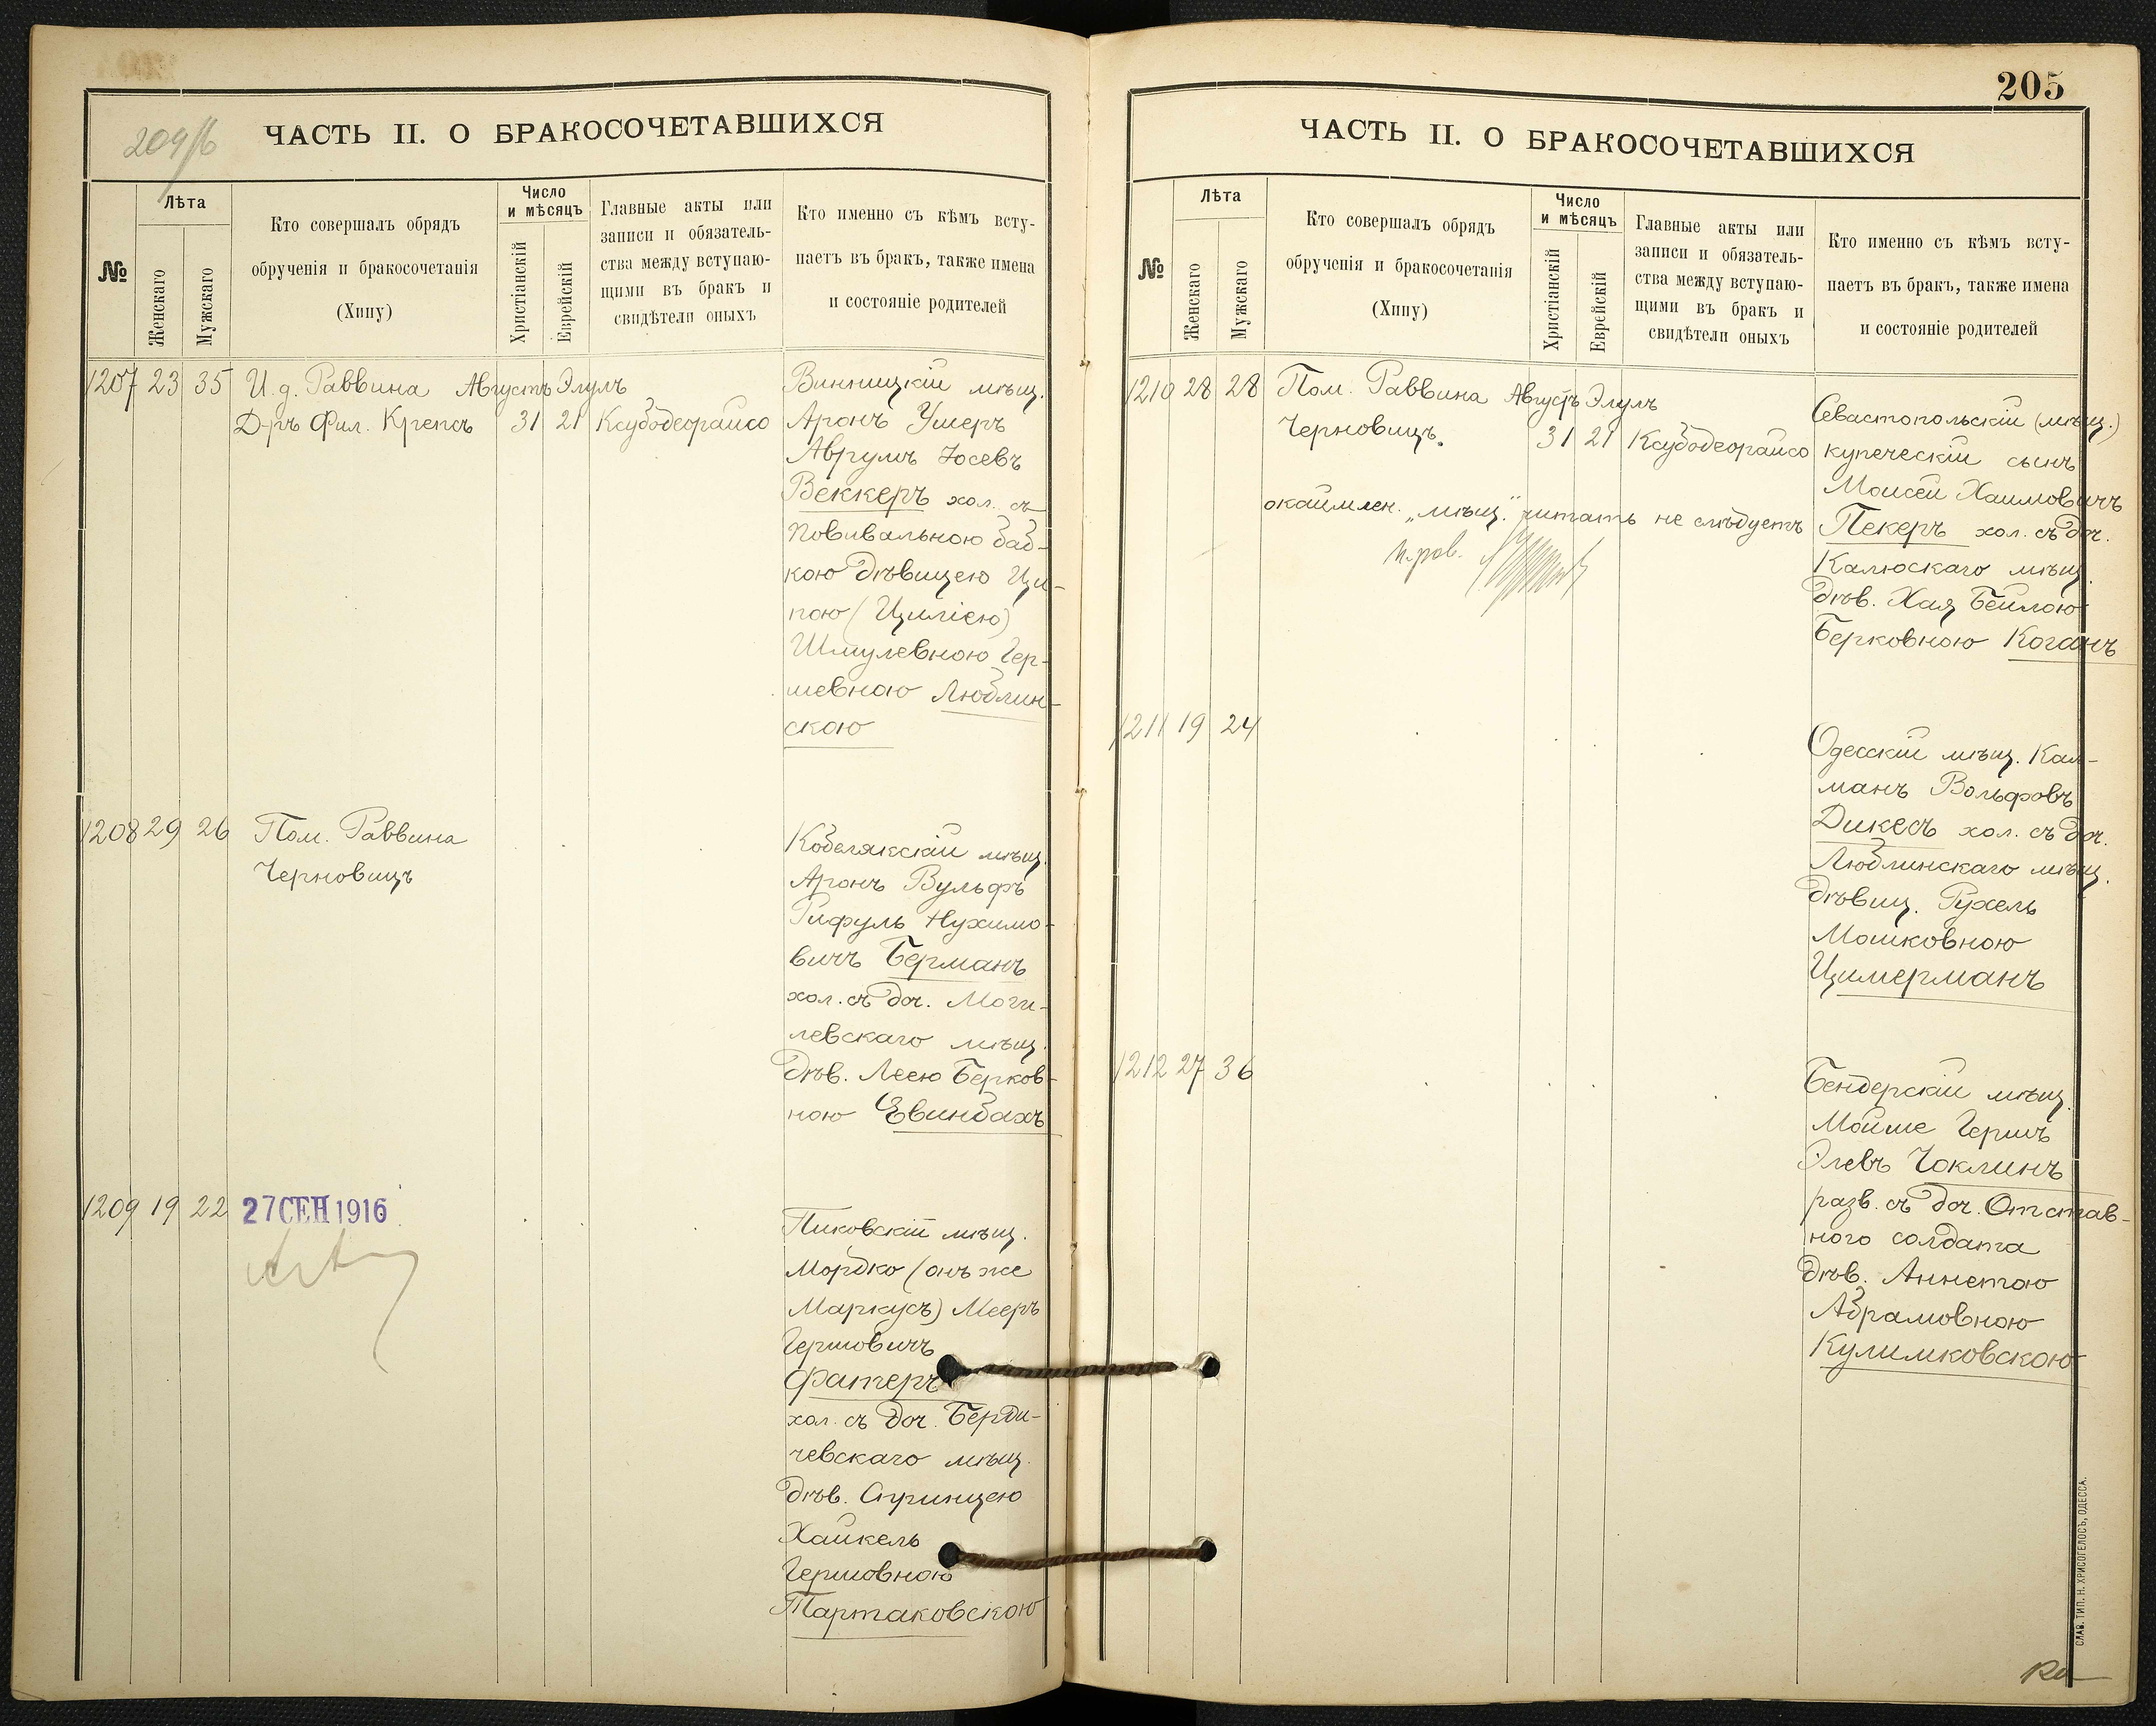 204/б
ЧАСТЬ II. О БРАКОСОЧЕТАВШИХСЯ
№
Лѣта
Женскаго
Мужскаго
Кто совершалъ обрядъ
обрученія и бракосочетанія
(Хипу)
Число
и мѣсяцъ
Христіанскій
Еврейскій
Главные акты или
записи и обязатель-
ства между вступаю-
щими въ бракъ и
свидѣтели оныхъ
Кто именно съ кѣмъ всту-
паетъ въ бракъ, также имена
и состояніе родителей
1207 23 35 И. д. Раввина Августъ Элулъ
Д-ръ Фил. Крепсъ 31 21 Ксубодеорайсо
Винницкій мѣщ.
Аронъ Ушеръ
Аврумъ Іосевъ
Веккеръ хол. съ
повивальною баб-
кою дѣвицею Ци-
пою (Циліею)
Шмулевною Гер-
шевною Люблин-
скою
1208 29 26 Пом. Раввина
Черновицъ
Кобелякскій мѣщ.
Аронъ Вульфъ
Рифулъ Нухимо-
вичъ Берманъ
хол. съ доч. Моги-
левскаго мѣщ.
дѣв. Леею Берков-
ною Евинбахъ
1209 19 22 27 СЕН 1916
Пиковскій мѣщ.
Мордко (онъ же
Маркусъ) Мееръ
Гершовичъ
Фатеръ
хол. съ доч. Берди-
чевскаго мѣщ.
дѣв. Сиринцею
Хайкель
Гершовною
Тартаковскою
205
ЧАСТЬ II. О БРАКОСОЧЕТАВШИХСЯ
№
Лѣта
Женскаго
Мужскаго
Кто совершалъ обрядъ
обрученія и бракосочетанія
(Хипу)
Число
и мѣсяцъ
Христіанскій
Еврейскій
Главные акты или
записи и обязатель-
ства между вступаю-
щими въ бракъ и
свидѣтели оныхъ
Кто именно съ кѣмъ всту-
паетъ въ бракъ, также имена
и состояніе родителей
1210 28 28 Пом. Раввина Августъ Элулъ
Черновицъ. 31 21 Ксубодеорайсо
окаймлен. „мѣщ." читать не слѣдуетъ
п. рав.
Севастопольскій (мѣщ.)
купеческій сынъ
Моисей Хаимовичъ
Пекеръ хол. съ доч.
Калюскаго мѣщ.
дѣв. Хая Бейлою
Берковною Коганъ
1211 19 24
Одесскій мѣщ. Кал-
манъ Вольфовъ
Дикесъ хол. съ доч.
Люблинскаго мѣщ.
дѣвиц. Рухель
Мошковною
Цимерманъ
1212 27 36
Бендерскій мѣщ.
Мойше Гершъ
Элевъ Чоклинъ
разв. съ доч. Отстав-
ного солдата
дѣв. Аннетою
Абрамовною
Кулимковскою
СЛАВ. ТИП. Н. ХРИСОГЕЛОСЪ, ОДЕССА.